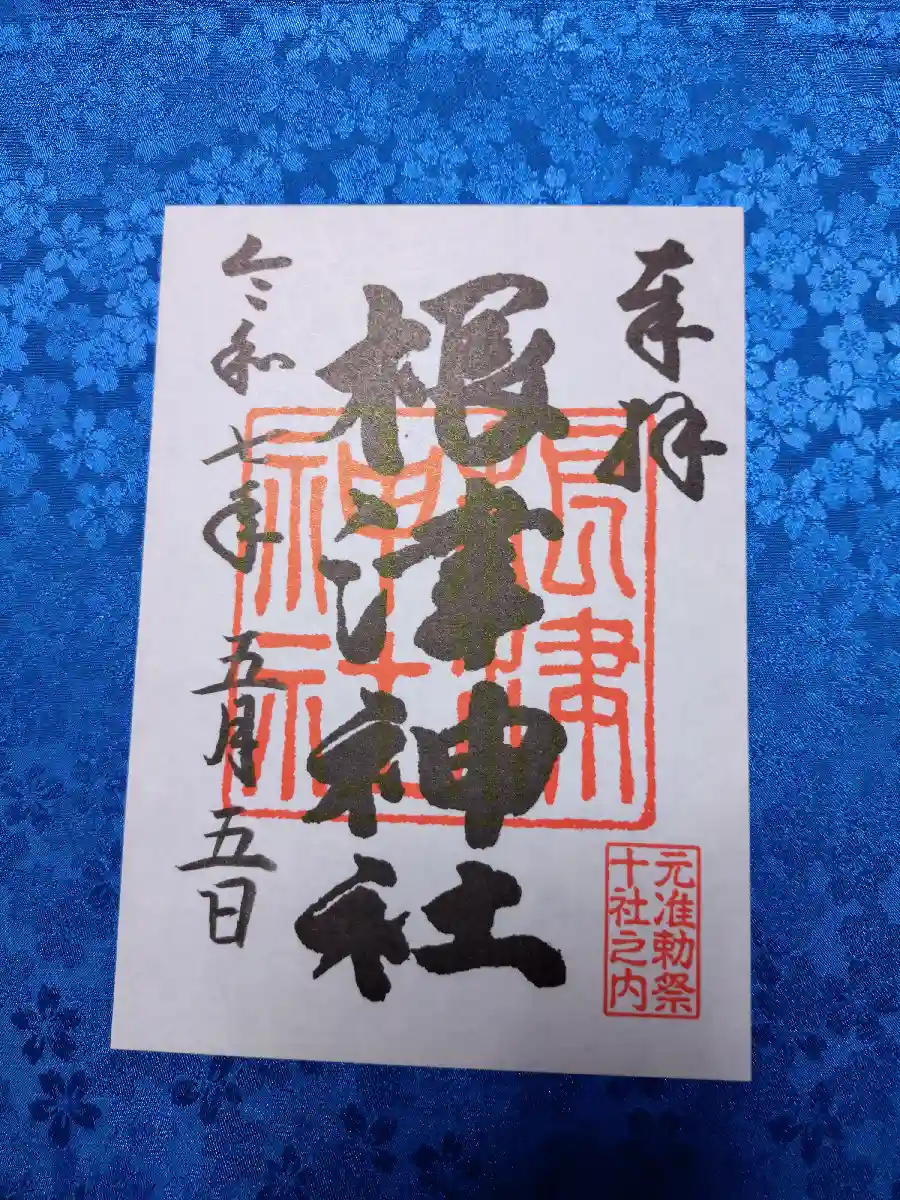 奉拝
根津神社
根津神社
元准勅祭
十社之内
令和七年五月五日